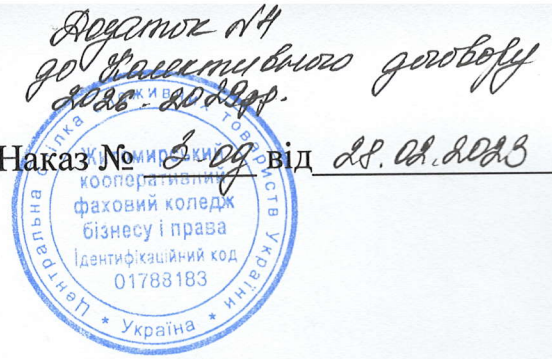 Додаток №4
до Колективного договору
2026-2029рр.
Наказ № 3-од від 28.02.2023
Центральна спілка споживчих товариств України * Україна *
Житомирський
кооперативний
фаховий коледж
бізнесу і права
Ідентифікаційний код
01788183